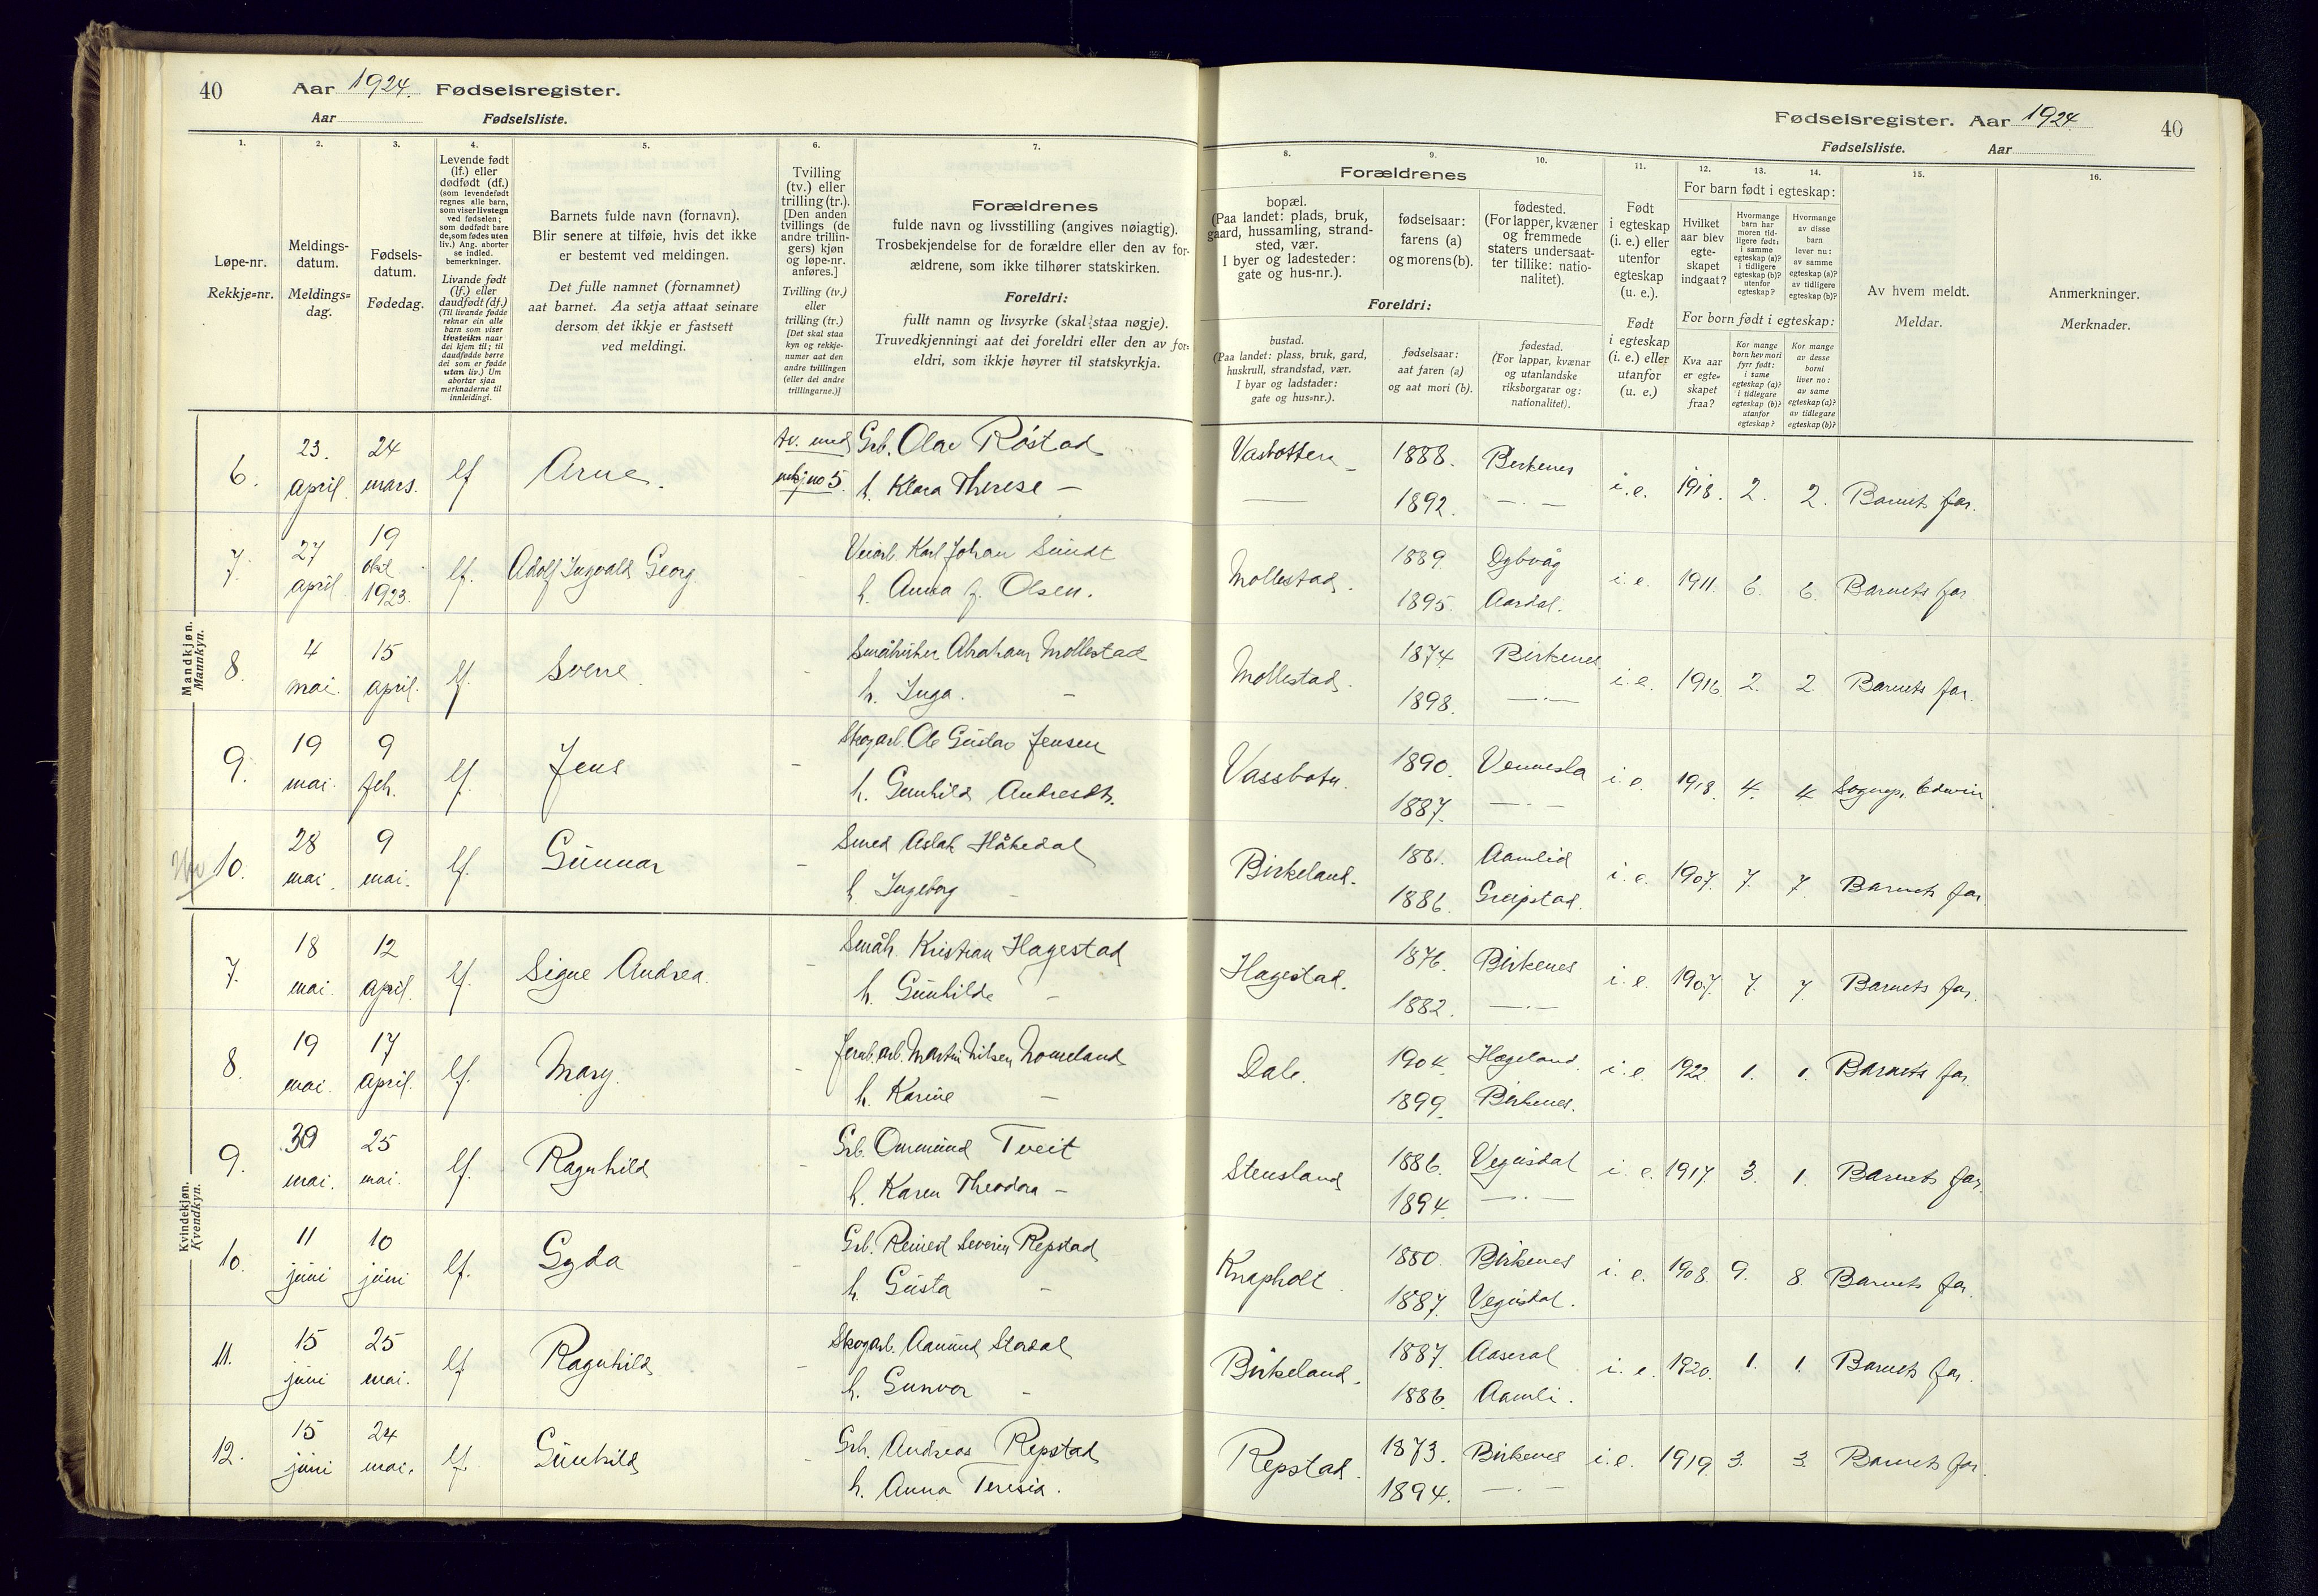 40
Aar 1924. Fødselsregister.
Aar Fødselsliste.
1. 2. 3. 4. 5. 6. 7.
Løpe-nr.
Rekkje-nr.
Meldings-
datum.
Meldings-
dag.
Fødsels-
datum.
Fødedag.
Levende født
(lf.) eller
dødfødt (df.)
(som levendefødt
regnes alle barn,
som viser livstegn
ved fødselen;
som dødfødt bare
de, som fødes uten
liv.) Ang. aborter
se indled.
bemerkninger.
Livande født
(lf.) eller
daudfødt (df.)
(Til livande fødde
reknar ein alle
barn som viser
livsteikn naar
dei kjem til; til
daudfødde berre
dei som er fødde
utan liv.) Um
abortar sjaa
merknaderne til
innleidingi.
Barnets fulde navn (fornavn).
Blir senere at tilføie, hvis det ikke
er bestemt ved meldingen.
Det fulle namnet (fornamnet)
aat barnet. Aa setja attaat seinare
dersom det ikkje er fastsett
ved meldingi.
Tvilling
(tv.) eller
trilling (tr.).
[Den anden
tvillings (de
andre trillin-
gers) kjøn
og løpe-nr.
anføres.]
Tvilling (tv.)
eller
trilling (tr.)
[Det skal staa
kyn og rekkje-
numer aat den
andre tvillingen
(eller dei andre
trillingarne.)]
Forældrenes
fulde navn og livsstilling (angives nøiagtig).
Trosbekjendelse for de forældre eller den av for-
ældrene, som ikke tilhører statskirken.
Foreldri:
fullt namn og livsyrke (skal staa nøgje).
Truvedkjenningi aat dei foreldri eller den av for-
eldri, som ikkje høyrer til statskyrkja.
Fødselsregister. Aar 1924
40
Fødselsliste. Aar
8. 9. 10. 11. 12. 13. 14. 15. 16.
Forældrenes
bopæl.
(Paa landet: plads, bruk,
gaard, hussamling, strand-
sted, vær.
I byer og ladesteder:
gate og hus-nr.).
fødselsaar:
farens (a)
og morens (b).
fødested.
(For lapper, kvæner
og fremmede
staters undersaat-
ter tillike: natio-
nalitet).
Foreldri:
bustad.
(Paa landet: plass, bruk, gard,
huskrull, strandstad, vær.
I byar og ladstader:
gate og hus-nr.).
fødselsaar:
aat faren (a)
og aat mori (b).
fødestad.
(For lappar, kvænar
og utanlandske
riksborgarar og:
nationalitet).
Født
i egteskap
(i. e.) eller
utenfor
egteskap
(u. e.).
Født
i egteskap
(i. e.) eller
utanfor
(u. e.)
For barn født i egteskap:
Hvilket
aar blev
egte-
skapet
indgaat?
Hvormange
barn har
moren tid-
ligere født:
i samme
egteskap (a)?
i tidligere
egteskap (b)?
utenfor
egteskap?
Hvormange
av disse
barn
lever nu:
av samme
egteskap (a)?
av tidligere
egteskap (b)?
For born født i egteskap:
Kva aar
er egte-
skapet
fraa?
Kor mange
born hev mori
fyrr født:
i same
egteskap (a)?
i tidlegare
egteskap (b)?
utanfor
egteskap?
Kor mange
av desse
borni
liver no:
av same
egteskap (a)?
av tidlegare
egteskap (b)?
Av hvem meldt.
Meldar.
Anmerkninger.
Merknader.
Mandkjøn.
Mannkyn.
6. 23. april. 24 mars. lf Arne. tv. med no 5. Grb. Olav Røstad
h. Klara Therese —
Vasbotten 1888. Birkenes i. e. 1918. 2. 2. Barnets far.
— 1892. — . —
7. 27 april. 19 okt 1923. lf. Adolf Ingvald Georg. Veiarb. Karl Johan Sundt
h. Anna f. Olsen.
Mollestad. 1889. Dybvåg i. e. 1911. 6. 6. Barnets far
1895. Aardal.
8. 4 mai. 15 april. lf. Sverre - Småbruker Abraham Mollestad
h. Inga. —
Mollestad. 1874 Birkenes i. e. 1916. 2. 2. Barnets far.
1898. — . —
9. 19 mai. 9 feb. lf. Jens - Skogarb. Ole Gustav Jensen
h. Gunhild Andresdt.
Vassbotn. 1890. Vennesla i. e. 1918. 4. 4 Sognepr. Edwin.
1887. — . —
10. 28 mai. 9 mai. lf. Gunnar - Smed Aslak Håkedal
h. Ingeborg —
Birkeland. 1881. Aamlid i. e. 1907. 7. 7. Barnets far.
1886. Greipstad.
Kvindekjøn.
Kvendkyn.
7. 18 mai. 12 april. lf. Signe Andrea. - Småb. Kristian Hagestad
h. Gunhilde —
Hagestad. 1876. Birkenes i. e. 1907. 7. 7. Barnets far.
1882. — . —
8. 19 mai. 17 april. lf. Mary. - Jernb. arb. Martin Nilsen Homeland
h. Karine —
Dale. 1904. Hægeland. i. e. 1922. 1. 1. Barnets far
1899. Birkenes.
9. 30 mai. 25 mai. lf. Ragnhild - Grb. Ommund Tveit
h. Karen Theodora —
Stensland 1886. Vegusdal i. e. 1917. 3. 1. Barnets far.
1894. — . —
10. 11 juni 10 juni lf. Gyda - Grb. Reinert Severin Repstad
h. Gusta —
Knapholt. 1880. Birkenes i. e. 1908. 9. 8. Barnets far.
1887. Vegusdal.
11. 15 juni 25 mai. lf Ragnhild - Skogarb. Aanund Stordal
h. Gunvor -
Birkeland. 1887. Aaseral i. e. 1920. 1. 1. Barnets far.
1886. Aamli.
12. 15 juni 24 mai. lf. Gunhild - Grb. Andreas Repstad
h. Anna Teresia.
Repstad. 1873. Birkenes i. e. 1919. 3. 3. Barnets far.
1894. — . —